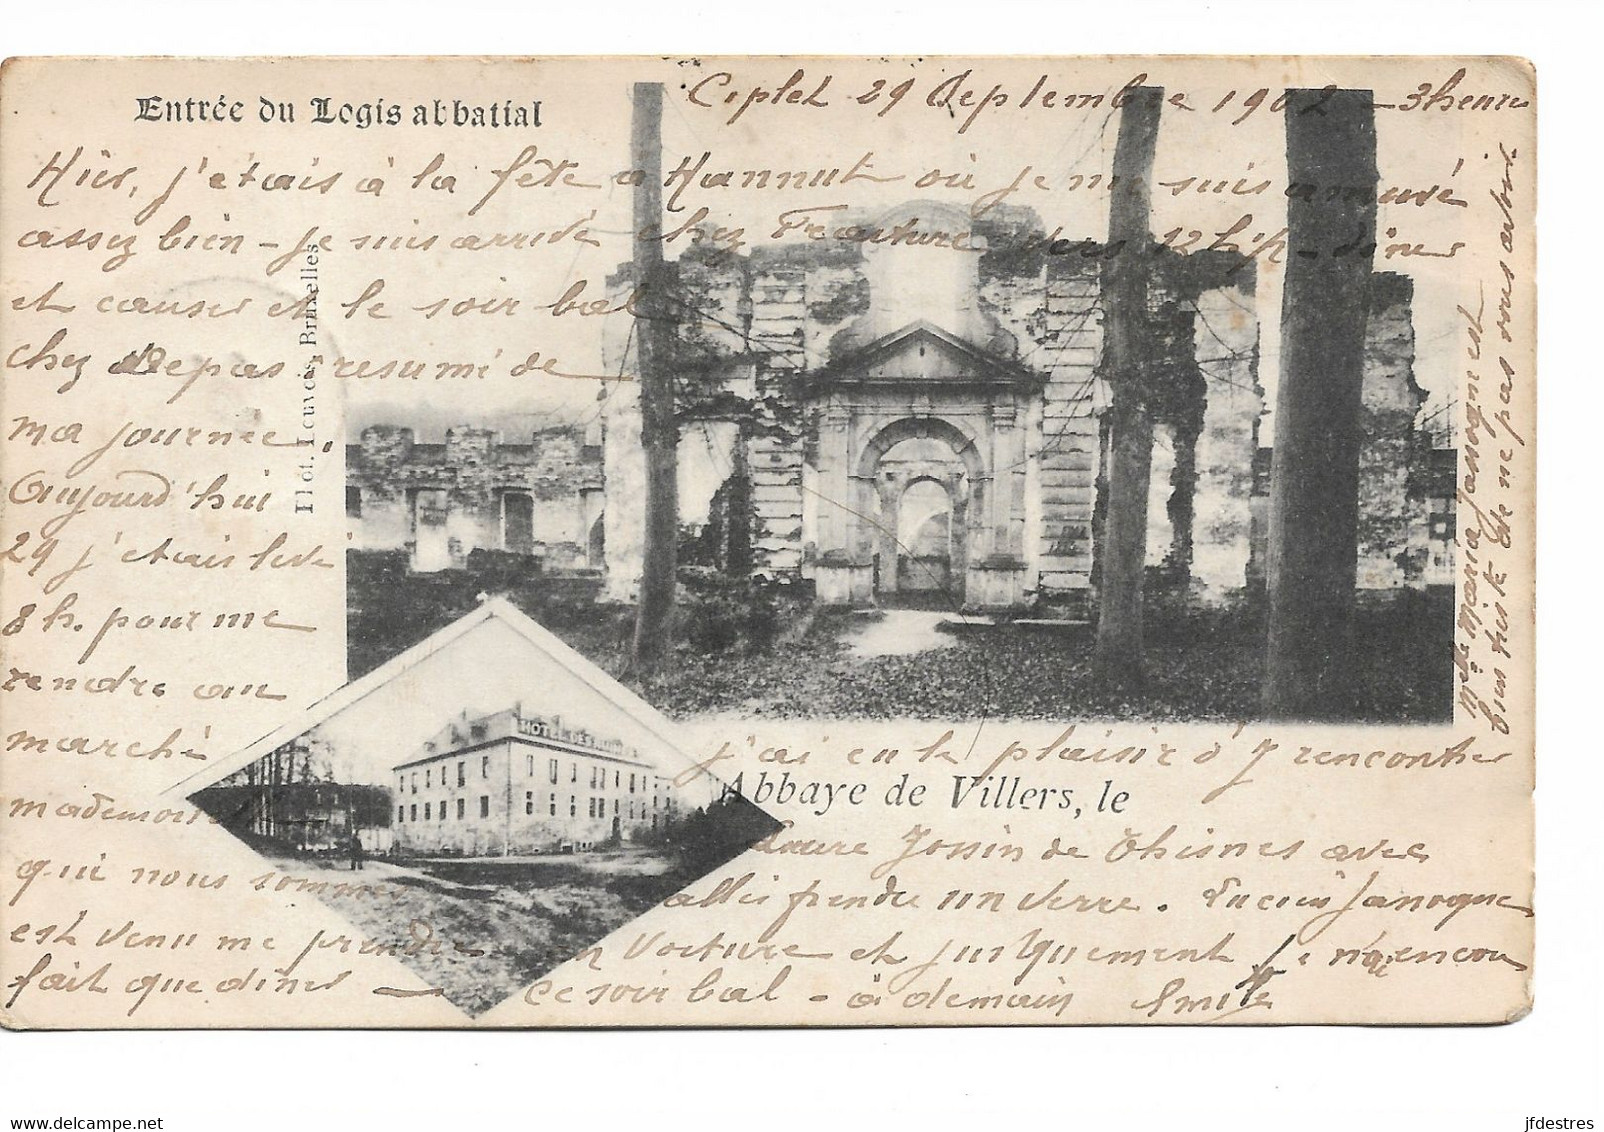 Entrée du Logis abbatial
Ciplet 29 Septembre 1902 - 3 heures
Hier, j'étais à la fête à Hannut où je me suis amusé
assez bien - je suis arrivé chez Fracture vers 12 h ½ - dîner
et causer et le soir bal
chez Depas resumé de
ma journée.
Aujourd'hui
29 j'étais levé
8 h. pour me
rendre au
marché
j'ai eu le plaisir d'y rencontrer
mademoiselle
Laure Jossin de Thisnes avec
qui nous sommes
allés prendre un verre. Lucien Janogne
est venu me prendre en voiture et jusquement je n'ai encore
fait que dîner — ce soir bal - à demain Emile
Mlle Maria Janogne est
bien triste de ne pas vous avoir
Phot. Neuvens, Bruxelles
HOTEL DES RUINES
Abbaye de Villers, le
delcampe.net
jfdestres